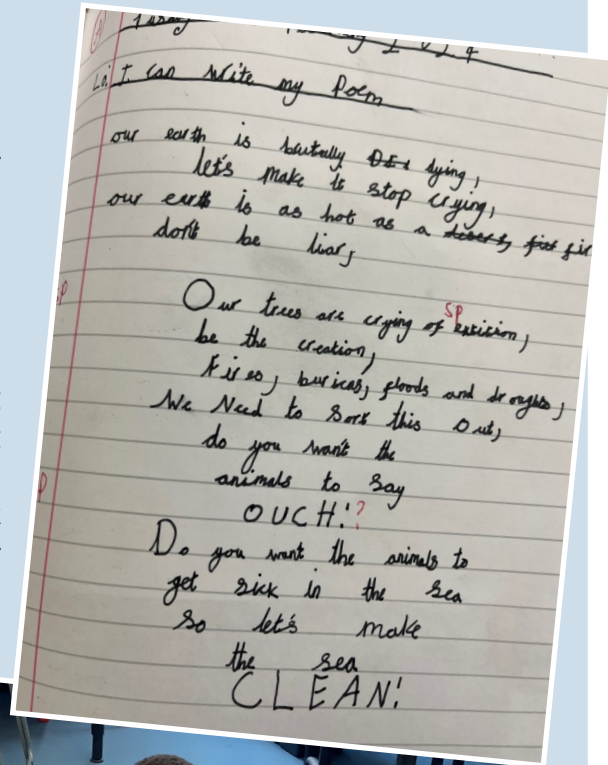 La: I can write my Poem
our earth is brutally dying,
let's make it stop crying,
our earth is as hot as a
don't be liar,
Our trees are crying of
SP
be the creation,
Fires, buricas, floods and droughts,
We Need to sort this out,
do you want the
animals to say
OUCH!?
Do you want the animals to
get sick in the sea
so let's make
the sea
CLEAN!